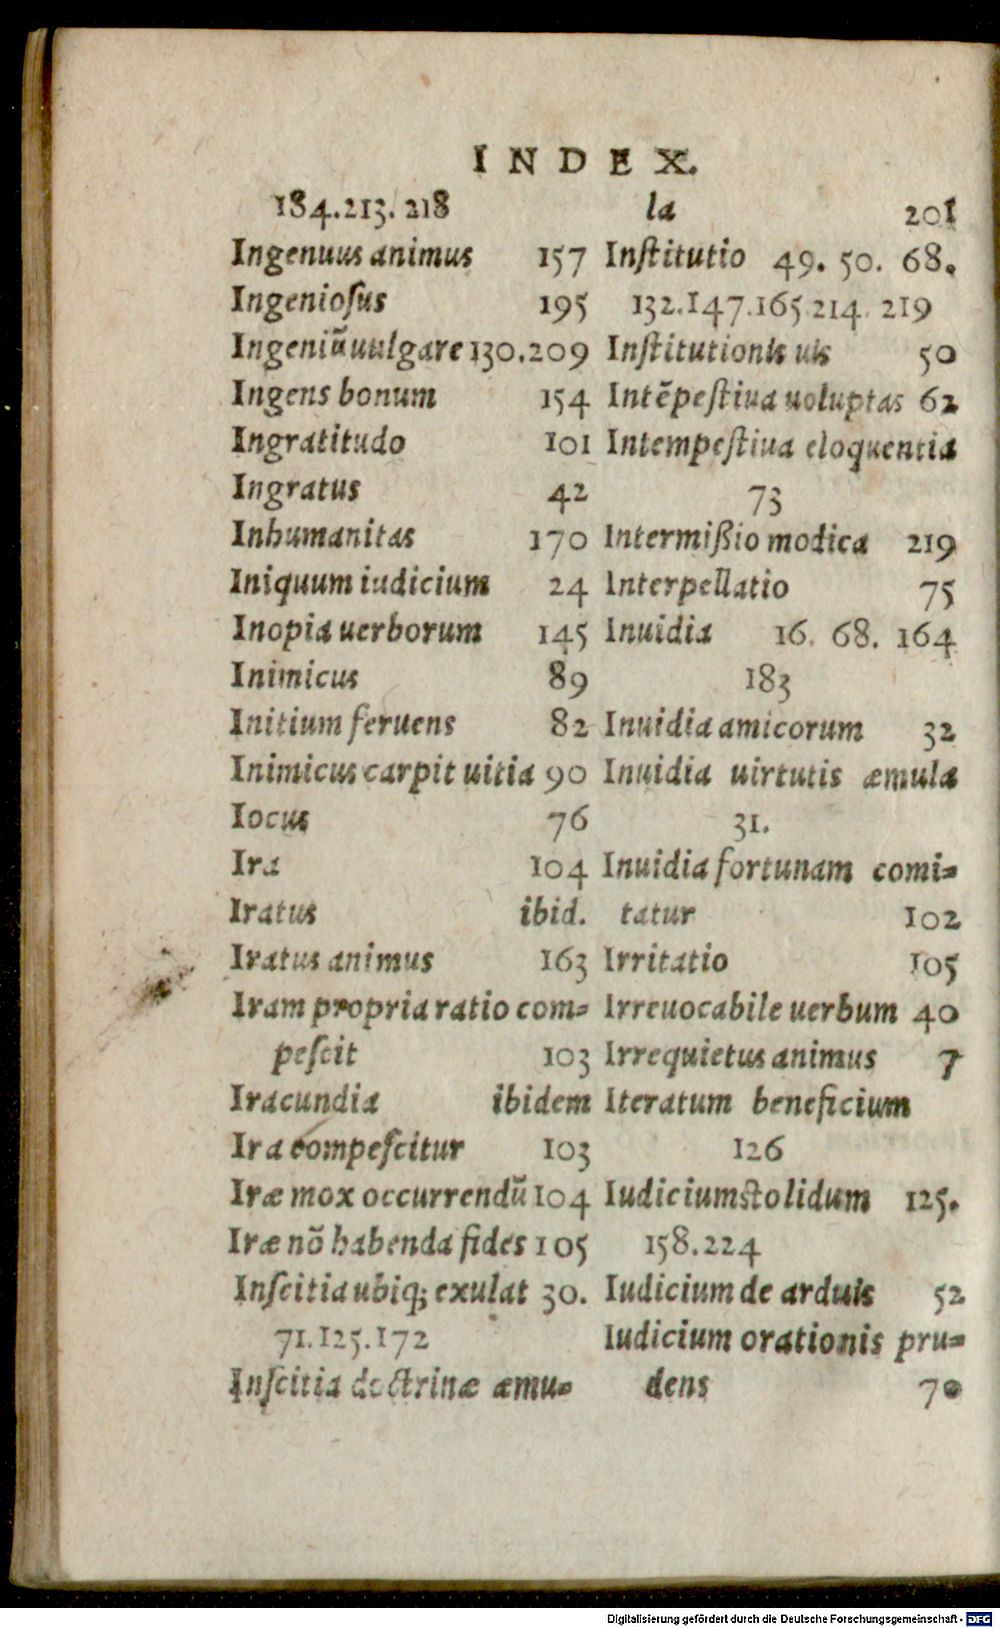 INDEX.
184.213. 218
Ingenuus animus 157
Ingeniosus 195
Ingeniũ uulgare 130.209
Ingens bonum 154
Ingratitudo 101
Ingratus 42
Inhumanitas 170
Iniquum iudicium 24
Inopia uerborum 145
Inimicus 89
Initium feruens 82
Inimicus carpit uitia 90
Iocus 76
Ira 104
Iratus ibid.
Iratus animus 163
Iram propria ratio com-
peſcit 103
Iracundia ibidem
Ira compeſcitur 103
Iræ mox occurrendũ 104
Iræ nõ habenda fides 105
Inſcitia ubiq; exulat 30.
71.125.172
Inſcitia doctrinæ æmu-
la 201
Inſtitutio 49. 50. 68.
132.147.165.214. 219
Inſtitutionis uis 50
Intẽpeſtiua uoluptas 62
Intempeſtiua eloquentia
73
Intermißio modica 219
Interpellatio 75
Inuidia 16. 68. 164
183
Inuidia amicorum 32
Inuidia uirtutis æmula
31.
Inuidia fortunam comi-
tatur 102
Irritatio 105
Irreuocabile uerbum 40
Irrequietus animus 7
Iteratum beneficium
126
Iudicium stolidum 125.
158.224
Iudicium de arduis 52
Iudicium orationis pru-
dens 70
Digitalisierung gefördert durch die Deutsche Forschungsgemeinschaft - DFG